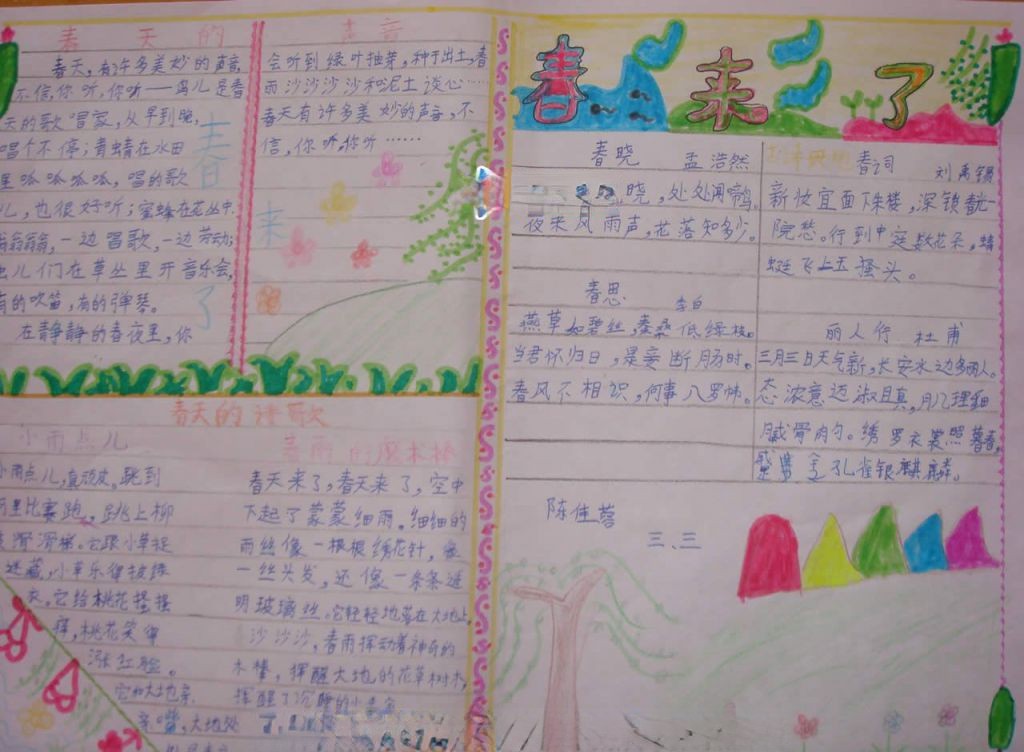 春天的
声音
春天,有许多美妙的声音,
不信,你听,你听——鸟儿是春
天的歌唱家,从早到晚,
唱个不停;青蜻在水田
里呱呱呱呱,唱的歌
儿,也很好听;蜜蜂在花丛中
嗡嗡嗡,一边唱歌,一边劳动;
虫儿们在草丛里开音乐会,
有的吹笛,有的弹琴。
在静静的春夜里,你
会听到绿叶抽芽,种子出土,春
雨沙沙沙沙和泥土谈心……
春天有许多美妙的声音,不
信,你听,你听……
春
来
了
春天的诗歌
小雨点儿
小雨点儿,真顽皮。跳到
里比赛跑。跳上柳
滑滑梯。它跟小草捉
迷藏,小草乐得
。它给桃花搔搔
痒,桃花笑得
涨红脸。
它和大地亲
亲嘴,大地处
春雨的魔术棒
春天来了,春天来了,空中
下起了蒙蒙细雨。细细的
雨丝像一根根绣花针,像
一丝头发,还像一条条透
明玻璃丝。它轻轻地落在大地上
沙沙沙,春雨挥动着神奇的
木棒,挥醒大地的花草树木,
挥醒了沉睡的小
春来了
春晓 孟浩然
晓,处处闻啼鸟。
夜来风雨声,花落知多少。
春思 李白
燕草如碧丝,秦桑低绿枝。
当君怀归日,是妾断肠时。
春风不相识,何事入罗帏。
春词 刘禹锡
新妆宜面下朱楼,深锁春光一
院愁。行到中庭数花朵,蜻
蜓飞上玉搔头。
丽人行 杜甫
三月三日天气新,长安水边多丽人。
态浓意远淑且真,肌理细
腻骨肉匀。绣罗衣裳照暮春,
蹙金孔雀银麒麟。
陈佳蓉
三、三